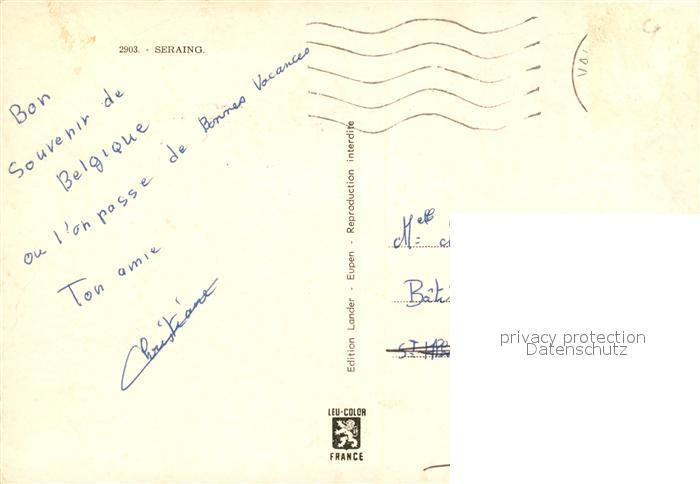 2903. - SERAING.
Bon
Souvenir de
Belgique
ou l'on passe de Bonnes Vacances
Ton amie
Christiane
Edition Lander - Eupen - Reproduction interdite
Melle
Bâti
St
LEU-COLOR
FRANCE
privacy protection
Datenschutz